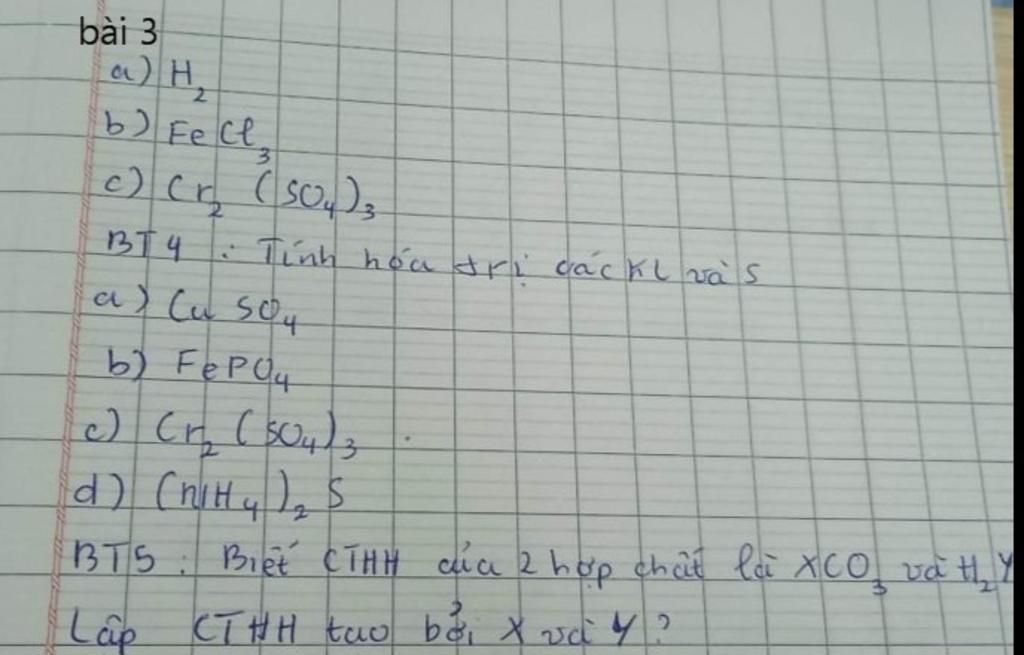 bài 3
a) H₂
b) FeCl₃
c) Cr₂ (SO₄)₃
BT4 : Tính hóa trị các KL và S
a) Cu SO₄
b) FePO₄
c) Cr₂ (SO₄)₃ .
d) (NH₄)₂ S
BT5 : Biết CTHH của 2 hợp chất là XCO₃ và H₂Y
Lập CTHH tạo bởi X và Y?